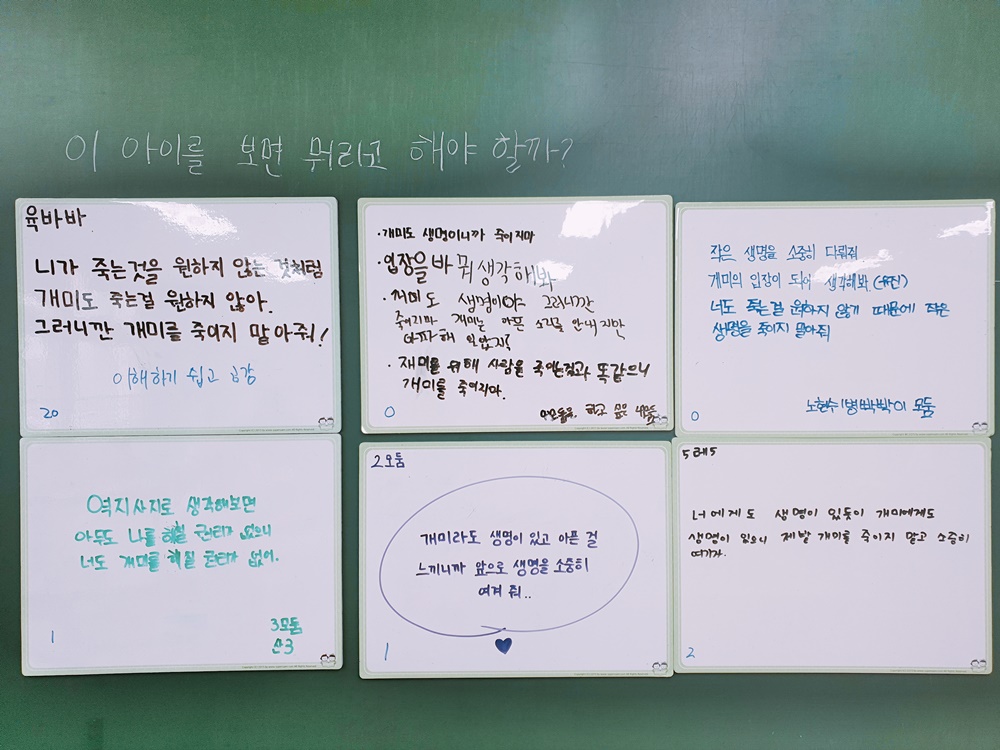 이 아이를 보면 뭐라고 해야 할까?
육바바
니가 죽는것을 원하지 않는 것처럼
개미도 죽는걸 원하지 않아.
그러니깐 개미를 죽이지 맡아줘!
이해하기 쉽고 공감
20
·개미도 생명이니까 죽이지마
·입장을 바꿔 생각해봐
·개미도 생명이야 그러니깐
죽이지마 개미는 아픈 소리를 안내지만
아파해 알았지?
·재미를 위해 사람을 죽이는것과 똑같으니
개미를 죽이지마.
0
작은 생명을 소중히 다뤄줘
개미의 입장이 되어 생각해봐
너도 죽는걸 원하지 않기 때문에 작은
생명을 죽이지 말아줘
0
노현수 모둠
역지사지로 생각해보면
아무도 나를 해칠 권리가 없으니
너도 개미를 해칠 권리가 없어.
1
3모둠
산3
2모둠
개미라도 생명이 있고 아픈 걸
느끼니까 앞으로 생명을 소중히
여겨 줘..
1
5레5
너에게도 생명이 있듯이 개미에게도
생명이 있으니 제발 개미를 죽이지 말고 소중히
여기자.
2